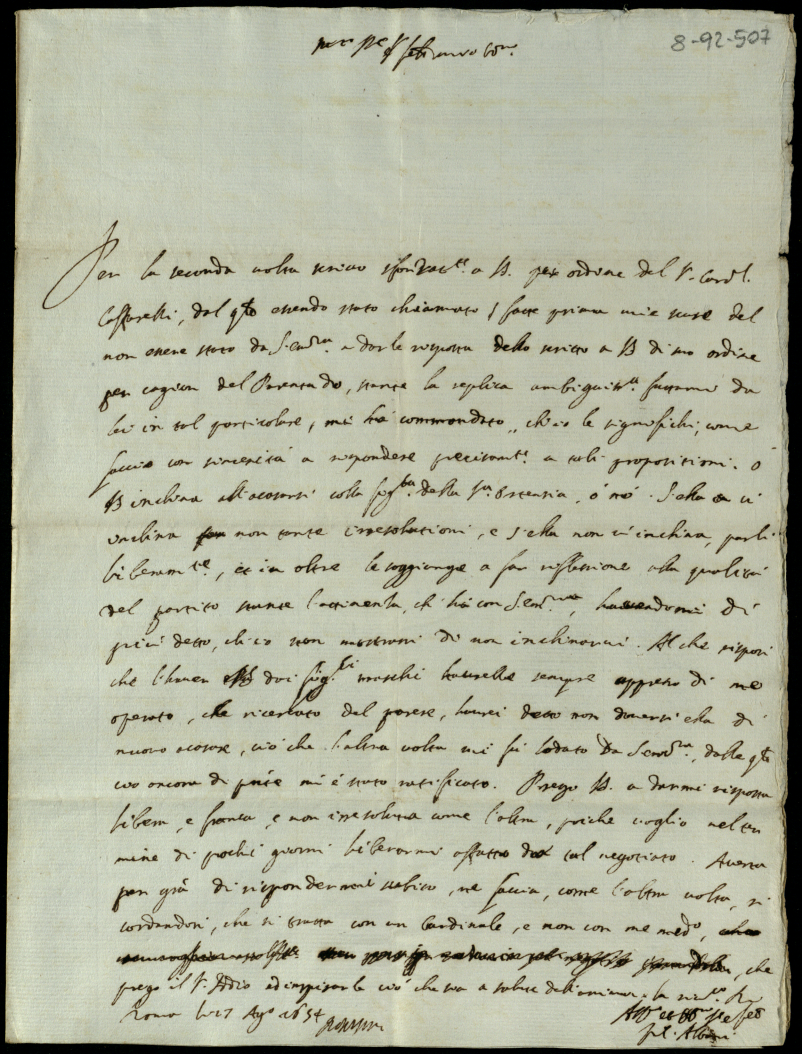 8-92-507
Per la seconda volta scrivo a B. per ordine del S. Card.l
Caffarelli, dal q.to essendo stato chiamato, e fatte prima mie scuse del
non essere stato da S. Em.za a darle risposta dello scritto a B di suo ordine
per cagion del Parentado, stante la replica fattami da
lei in tal particolare, mi hà commandato, ch'io le significhi, come
faccio con sincerità a rispondere precisam.te a tali propositioni. ó
B inclina all'acasarsi colla fig.la della S.ra Ortensia, ó nó. S'ella vi
inclina non tante irresolutioni, e s'ella non vi inclina, parli
liberam.te, et in oltre le soggiunge a far riflessione alla qualità
del partito stante l'attinenza, ch'hà con S. Em.za, havendomi di
più detto, ch'io non mostrassi di non inclinarvi. Al che risposi
che l'haver B doi fig.li maschi haurebbe sempre appresso di me
operato, che ricercato del parere, haurei detto non doversi ella di
nuovo acasare, ciò che l'altra volta mi fù lodato da S. Em.za, dalla q.le
ciò ancora di p.nte mi é stato ratificato. Prego B. a darmi risposta
libera, e franca, e non irresoluta come l'altra, poiche voglio nel ter
mine di pochi giorni liberarmi affatto da tal negotiato. Averta
per grã di rispondermi subito, nè faccia, come l'altra volta, ri
cordandosi, che si tratta con un Cardinale, e non con me med.o, che
prego il S. Iddio ad inspirarle ciò che sia a salute dell'anima.
Roma li 17 Ag.o 1654
Albani